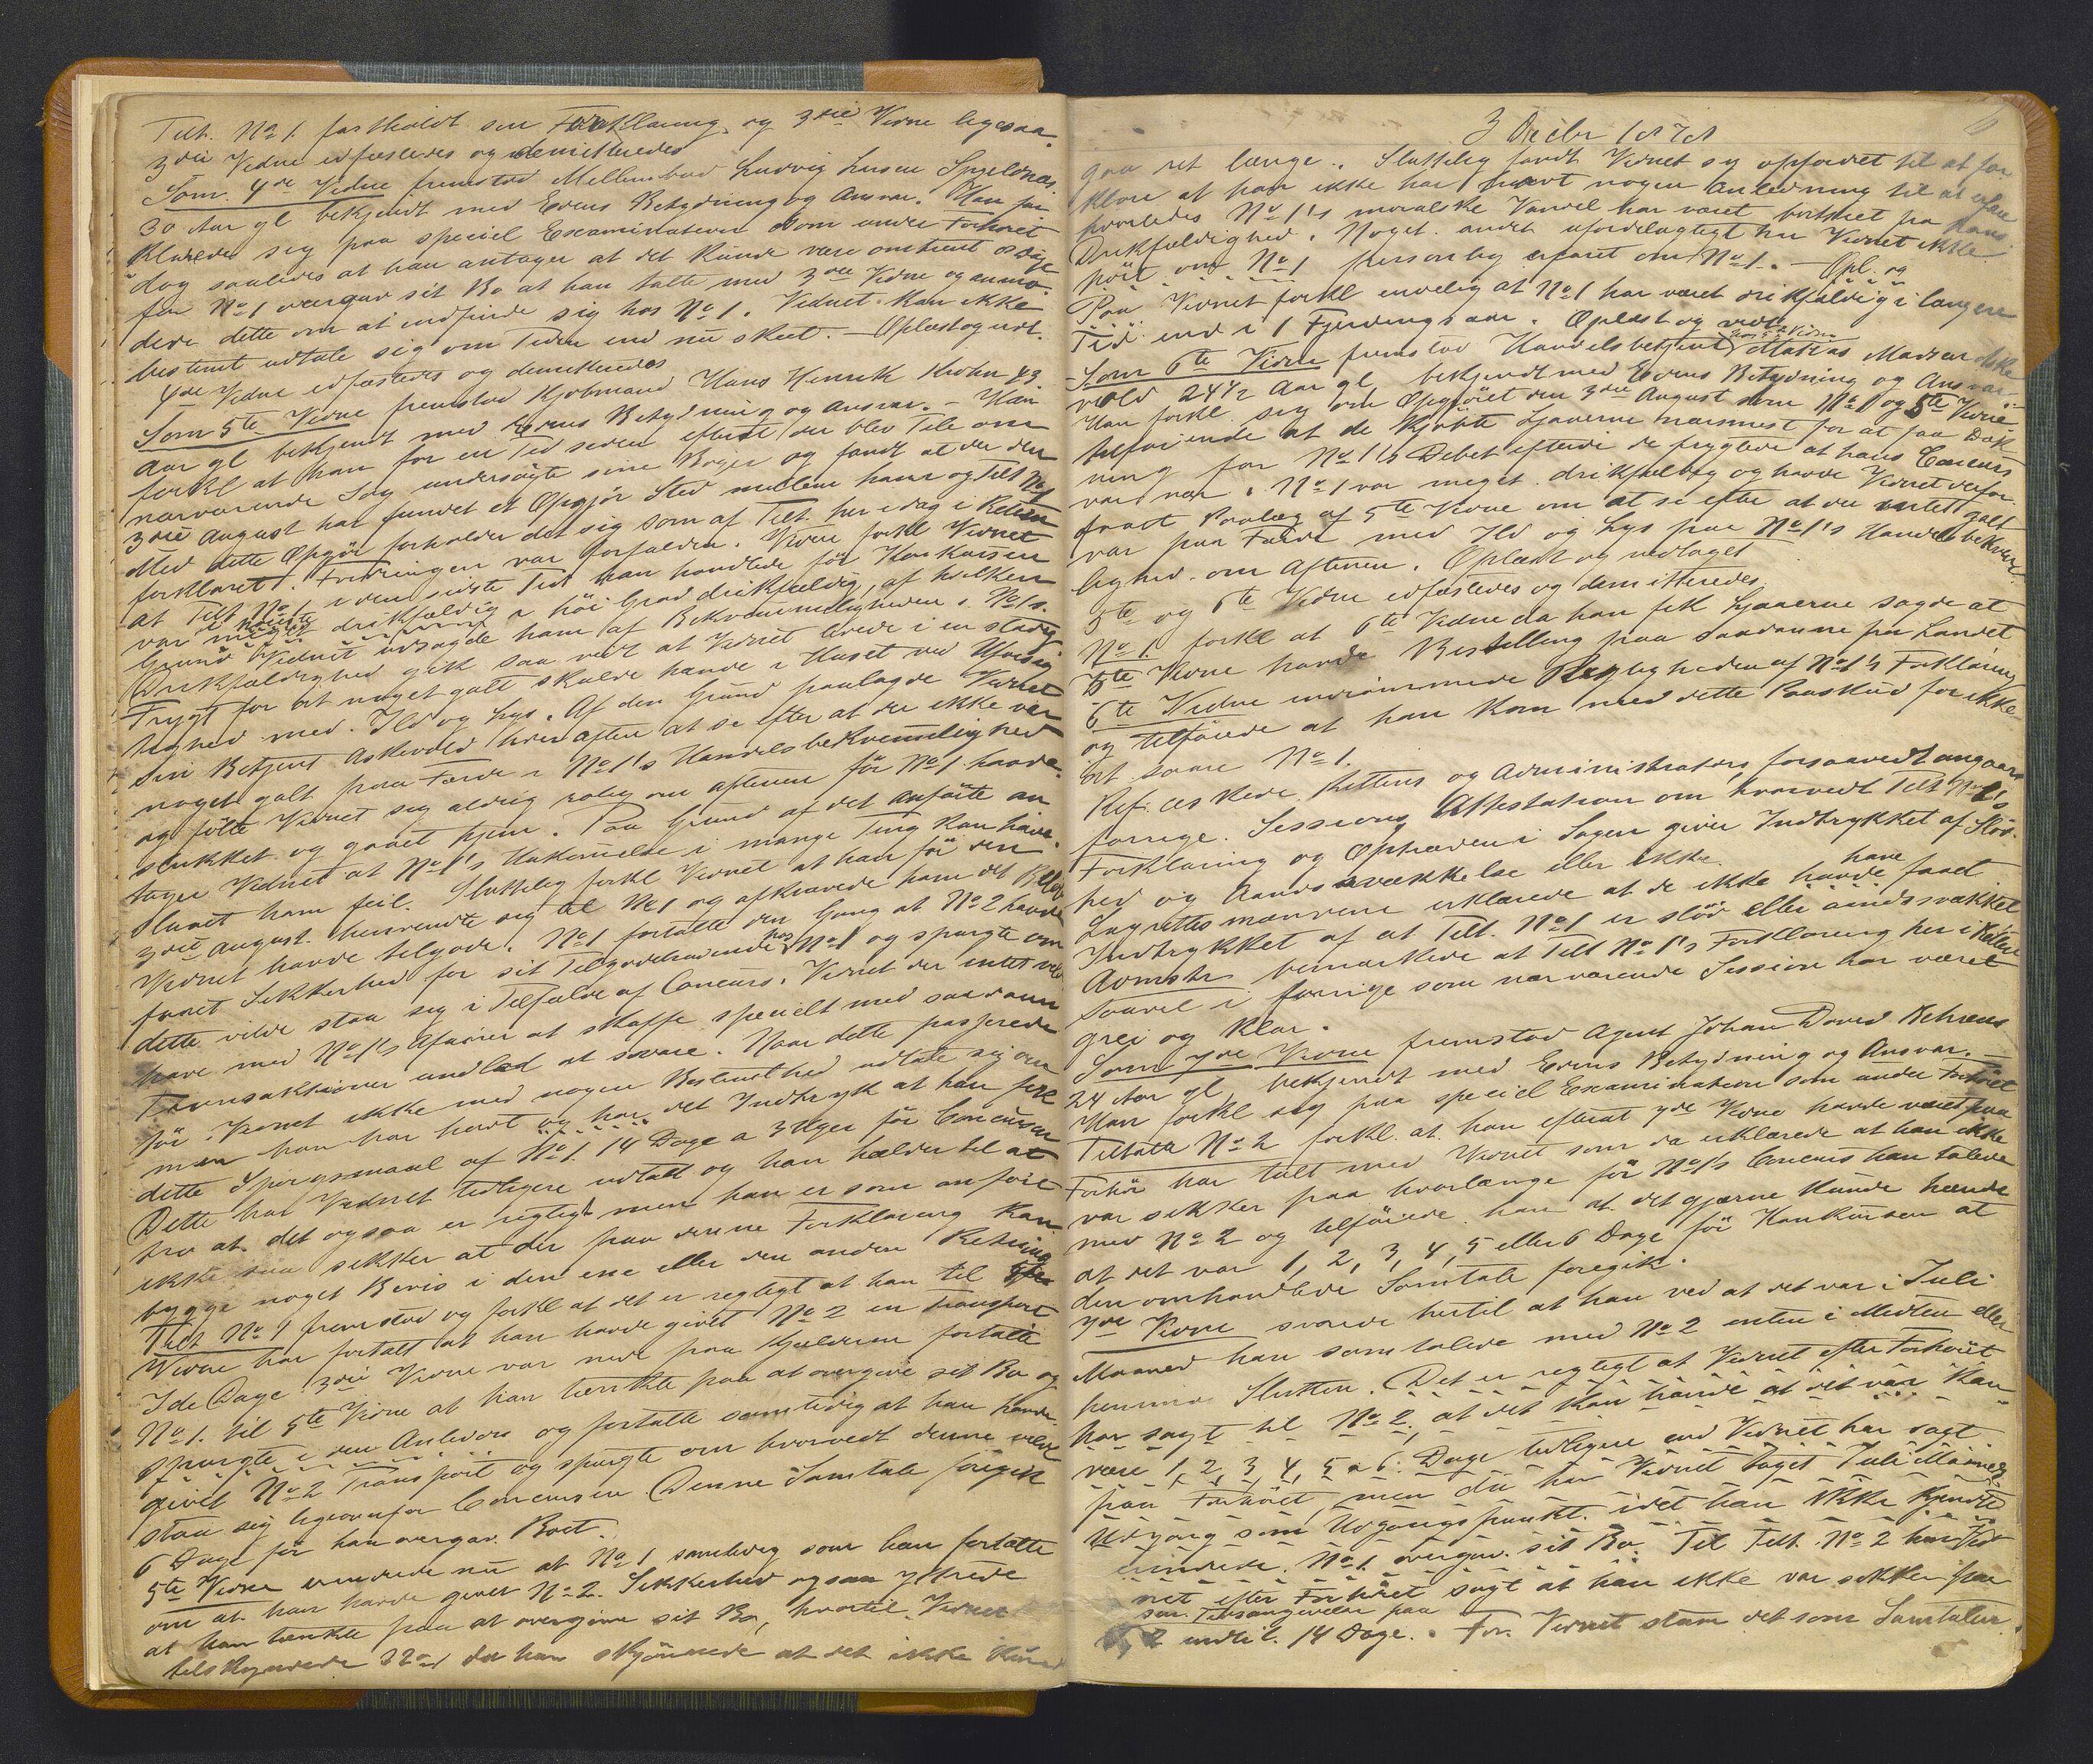 Tilt. No 1. fastholdt sin Forklaring og 3die Vidne ligesaa.
3die Vidne edfæstedes og demitteredes
Som 4de Vidne fremstod Mellembud Ludvig Larsen Spjeldnæs
30 Aar gl bekjendt med Edens Betydning og Ansvar. Han for
klarede sig paa speciel Examination som under Forhøret
dog saaledes at han antager at det kunde være omtrent 8 Dage
før No 1 overgav sit Bo at han talte med 3die Vidne og anmo
dede dette om at indfinde sig hos No 1. Vidnet kan ikke
bestemt udtale sig om Tiden end nu skeet. — Oplæst og vedt.
4de Vidne edfæstedes og demitteredes
Som 5te Vidne fremstod Kjøbmand Hans Henrik Krohn 43
Aar gl bekjendt med Edens Betydning og Ansvar. — Han
forkl at han for en Tid siden efterat der blev Tale om
nærværende Sag undersøgte sine Bøger og fandt at der den
3die August har fundet et Opgjør Sted mellem ham og Tilt No 1
Med dette Opgjør forholder det sig som af Tilt. her idag i Retten
forklaret. Fordringen var forfalden. Videre forkl Vidnet
at Tilt No 1 i den sidste Tid han handlede før Konkursen
var meget drikfældig i høi Grad drikfældig, af hvilken
Grund Vidnet udsagde ham af Bekvemmeligheden. No 1s.
Drikfældighed gik saa vidt at Vidnet levede i en stadig
Frygt for at noget galt skulde hænde i Huset ved Uforsig
tighed med Ild og Lys. Af den Grund paalagde Vidnet
sin Betjent Askevold hver aften at se efter at der ikke var
noget galt paa Færde i No 1's Handelsbekvemmelighed
og følte Vidnet sig aldrig rolig om aftenen før No 1 havde
slukket og gaaet hjem. Paa Grund af det anførte an
tager Vidnet at No 1's Hukommelse i mange Ting kan have
slaaet ham feil. Slutteligt forkl Vidnet at han før den
3die August henvendte sig til No 1 og afkrævede ham det Beløb
Vidnet havde tilgode. No 1 fortalte den Gang at No 2 havde
faaet Sikkerhed for sit Tilgodehavende hos No 1 og spurgte om
dette vilde staa sig i Tilfælde af Concurs. Vidnet der intet vilde
have med No 1's Afairer at skaffe specielt med saadanne
Transaktioner undlod at svare. Naar dette passerede
tør Vidnet ikke med nogen Bestemthed udtale sig om
men han har havt og har det Indtryk at han fik
dette Spørgsmaal af No 1. 14 Dage a 3 Uger før Concursen
Dette har Vidnet tidligere udtalt og han hælder til at
tro at det ogsaa er rigtigt men han er som anført
ikke saa sikker at der paa denne Forklaring kan
bygge noget Bevis i den ene eller den anden Retning
Tilt No 1 fremstod og forkl at det er rigtigt at han til 5te
Vidne har fortalt at han havde givet No 2 en Transport
I de Dage 3die Vidne var nede paa Gjelden fortalte
No 1. til 5te Vidne at han tænkte paa at overgive sit Bo og
spurgte i den Anledn og fortalte samtidig at han havde
givet No 2 Transport og spurgte om hvorvidt denne vilde
staa sig ligeoverfor Concursen Denne Samtale foregik
6 Dage før han overgav Boet.
5te Vidne erindrede nu at No 1 samtidig som han fortalte
om at han havde givet No 2. Sikkerhed ogsaa yttrede
at han tænkte paa at overgive sit Bo, hvortil Vidnet
tilskyndede da han skjønnede at det ikke kunde
3 Decbr 1878
gaa ret længe. Slutteligt fandt Vidnet sig opfordret til at for
klare at han ikke har havt nogen Anledning til at erfare
hvorledes No 1's moralske Vandel har været bortseet fra hans
Drikfældighed. Noget andet ufordelagtigt har Vidnet ikke
hørt om No 1 personlig erfaret om No 1. — Opl. og
Paa Vidnet forkl endelig at No 1 har været drikfældig i længere
Tid end i 1 Fjerdingsaar. Oplæst og vedt.
Som 6te Vidne fremstod Handelsbetjent Mathias Madsen Aske
vold 24½ Aar gl bekjendt med Edens Betydning og Ansvar.
Han forkl sig om Opgjøret den 3die August som No 1 og 5te Vidne
tilføiende at de kjøbte Ljaaerne nærmest for at faa Dæk
ning for No 1's Debet efterdi de frygtede at hans Concurs
var nær. No 1 var meget drikfældig og havde Vidnet derfor
faaet Paalæg af 5te Vidne om at se efter at der intet galt
var paa Færde med Ild og Lys paa No 1's Handelsbekvem
lighed om Aftenen. Oplæst og vedtaget
5te og 6te Vidne edfæstedes og demitteredes.
No 1. forkl at 6te Vidne da han fik Ljaaerne sagde at
5te Vidne havde Bestilling paa saadanne fra Landet
6te Vidne indrømmede Rigtigheden af No 1's Forklaring
og tilføiede at han kom med dette Paaskud for ikke
at saare No 1.
Ref. æskede Rettens og Administrators, forsaavidt angaar
forrige Sessions Attestation om hvorvidt Tilt No 1's
Forklaring og Optræden i Sagen giver Indtrykket af Sløv
hed og Aandssvækkelse eller ikke.
Lagrettesmændene erklærede at de ikke havde have faaet
Indtrykket af at Tilt. No 1 er sløv eller aandssvækket
Admstr bemærkede at Tilt No 1's Forklaring her i Retten
saavel i forrige som nærværende Session har været
grei og klar.
Som 7de Vidne fremstod Agent Johan David Behrens
24 Aar gl, bekjendt med Edens Betydning og Ansvar. —
Han forkl sig paa speciel Examination som under Forhøret
Tiltalte No 2 forkl. at han efterat 7de Vidne havde været paa
Forhør har talt med Vidnet som da erklærede at han ikke
var sikker paa hvorlænge før No 1's Concurs han talede
med No 2 og tilføiede han at det gjerne kunde hænde
at det var 1, 2, 3, 4, 5 eller 6 Dage før Konkursen at
den omhandlede Samtale foregik.
7de Vidne svarede hertil at han ved at det var i Juli
Maaned han samtalede med No 2 enten i Midten eller
henimod Slutten. Det er rigtigt at Vidnet efter Forhøret
har sagt til No 2, at det kan hænde at det var kan
være 1, 2, 3, 4, 5 a 6 Dage tidligere end Vidnet har sagt
paa Forhøret, men da har Vidnet taget Juli Maaneds
Udgang som Udgangspunkt. idet han ikke kjendte
erindrede No 1 overgav sit Bo. Til Tilt. No 2 har Vid
net efter Forhøret sagt at han ikke var sikker paa
sin Tidsangivelse paa
indtil 14 Dage. For Vidnet staar det som Samtalen